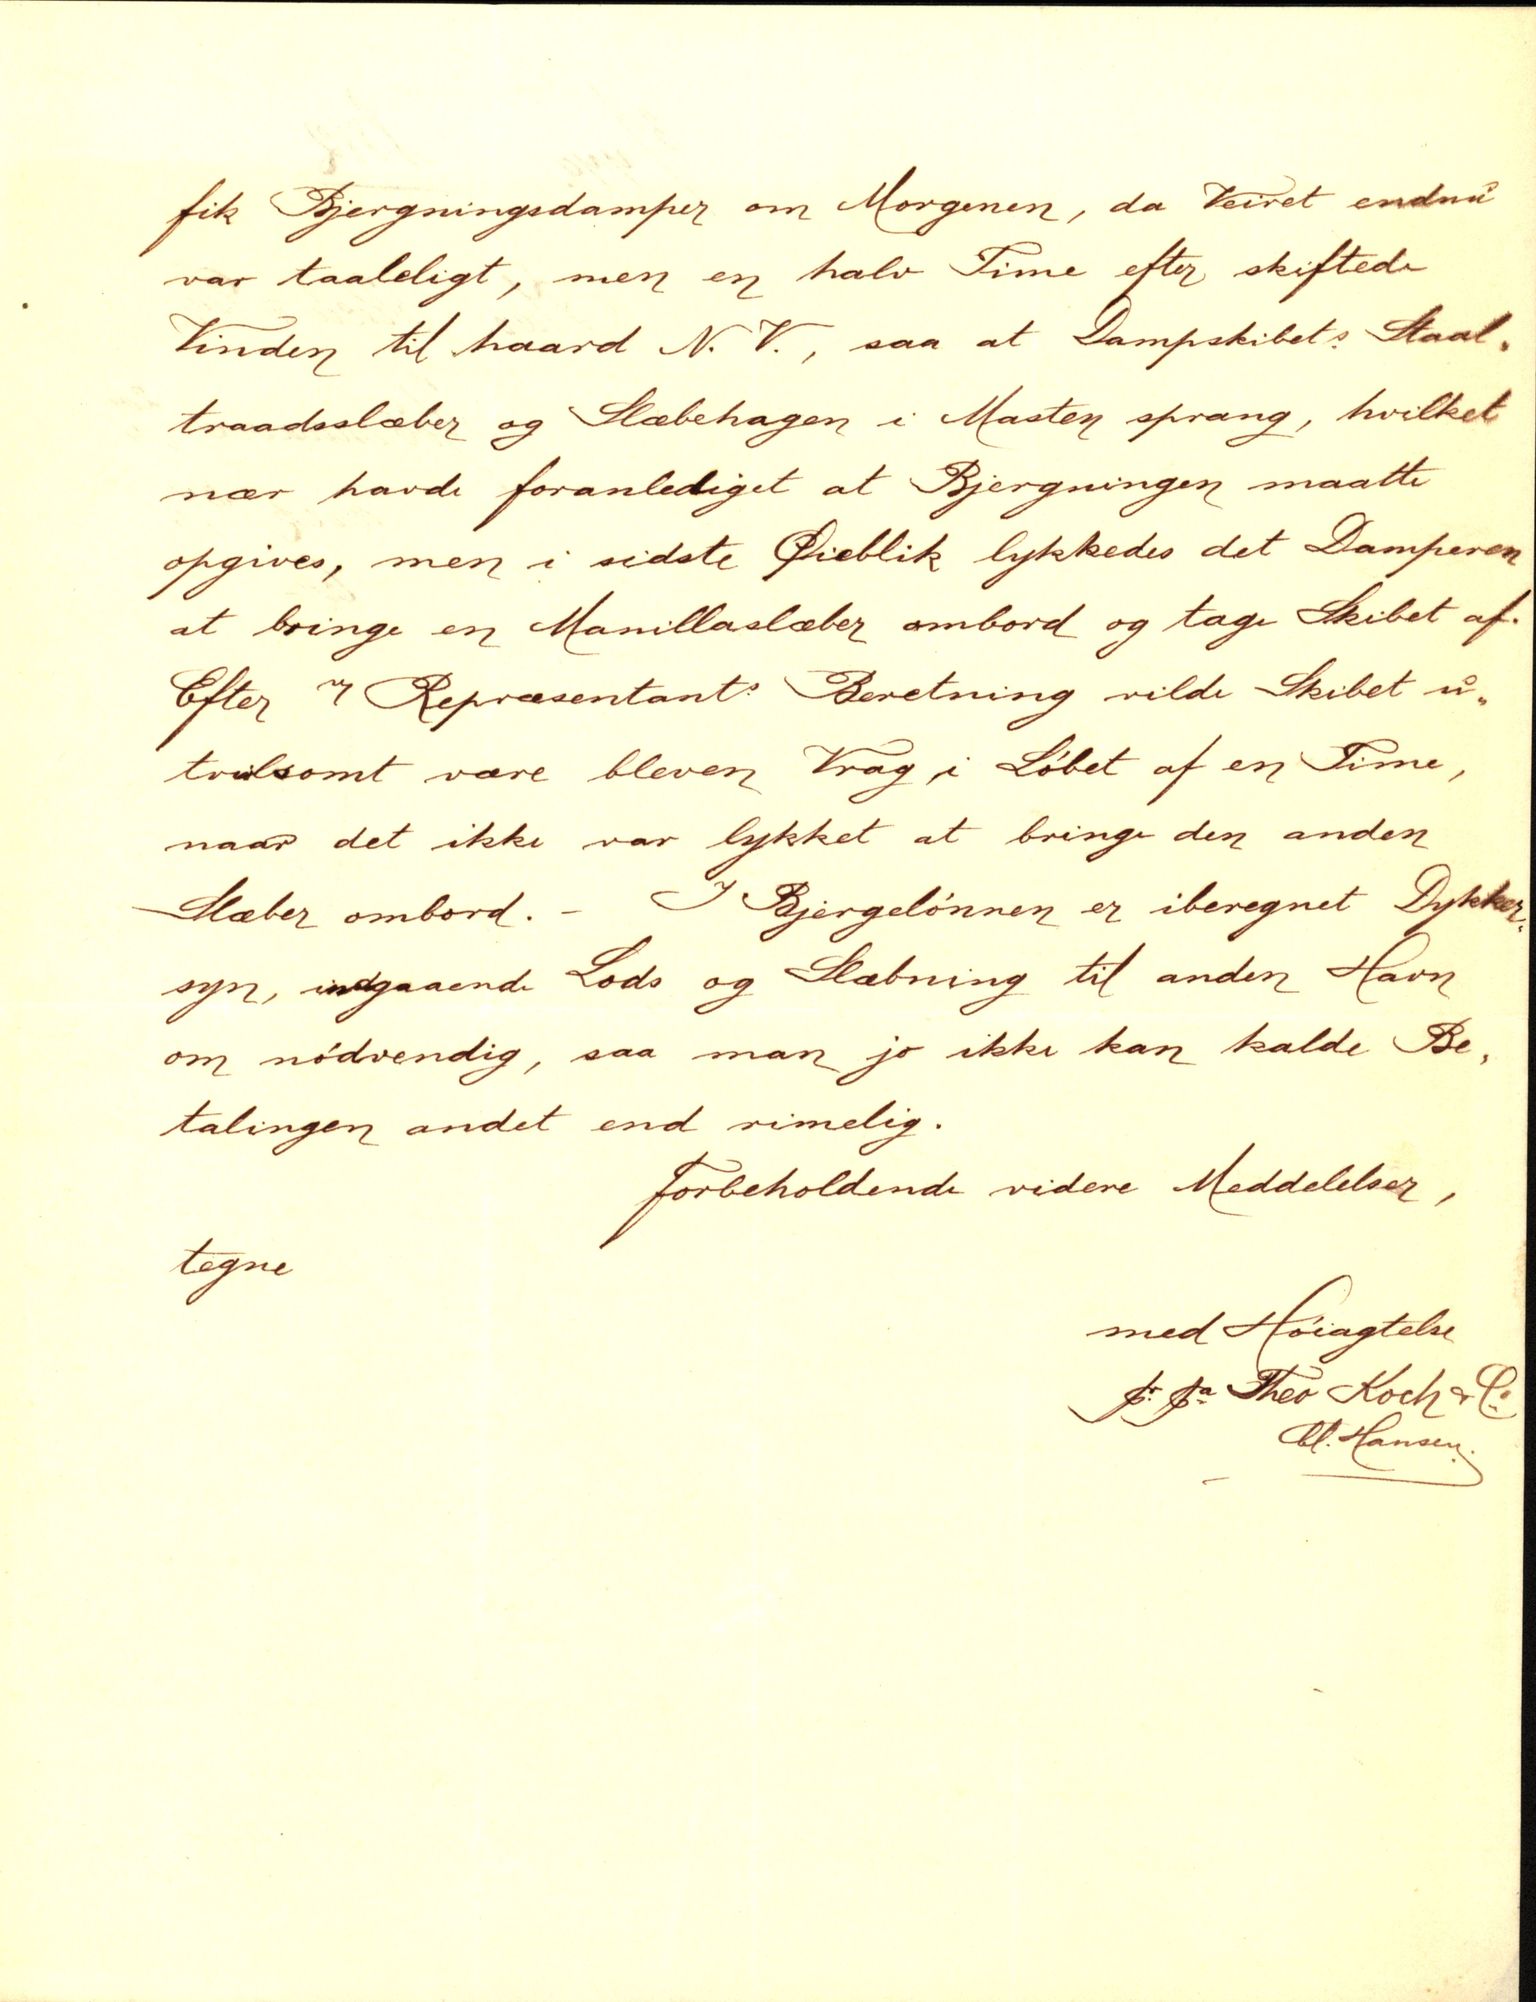 fik Bjergningsdamper om Morgenen, da Veiret endnu
var taaleligt, men en halv Time efter skiftede
Vinden til haard N. V., saa at Dampskibets Staal-
traadsslæber og Slæbehagen i Masten sprang, hvilket
nær havde foranlediget at Bjergningen maatte
opgives, men i sidste Øieblik lykkedes det Damperen
at bringe en Manillaslæber ombord og tage Skibet af.
Efter Repræsentants Beretning vilde Skibet u-
tvilsomt være bleven Vrag i Löbet af en Time,
naar det ikke var lykket at bringe den anden
Slæber ombord. - I Bjergelönnen er iberegnet Dykker-
syn, indgaaende Lods og Slæbning til anden Havn
om nödvendig, saa man jo ikke kan kalde Be-
talingen andet end rimelig.
Forbeholdende videre Meddelelser,
tegne
med Höiagtelse
pr. pa Theo Koch & Co
Hansen.